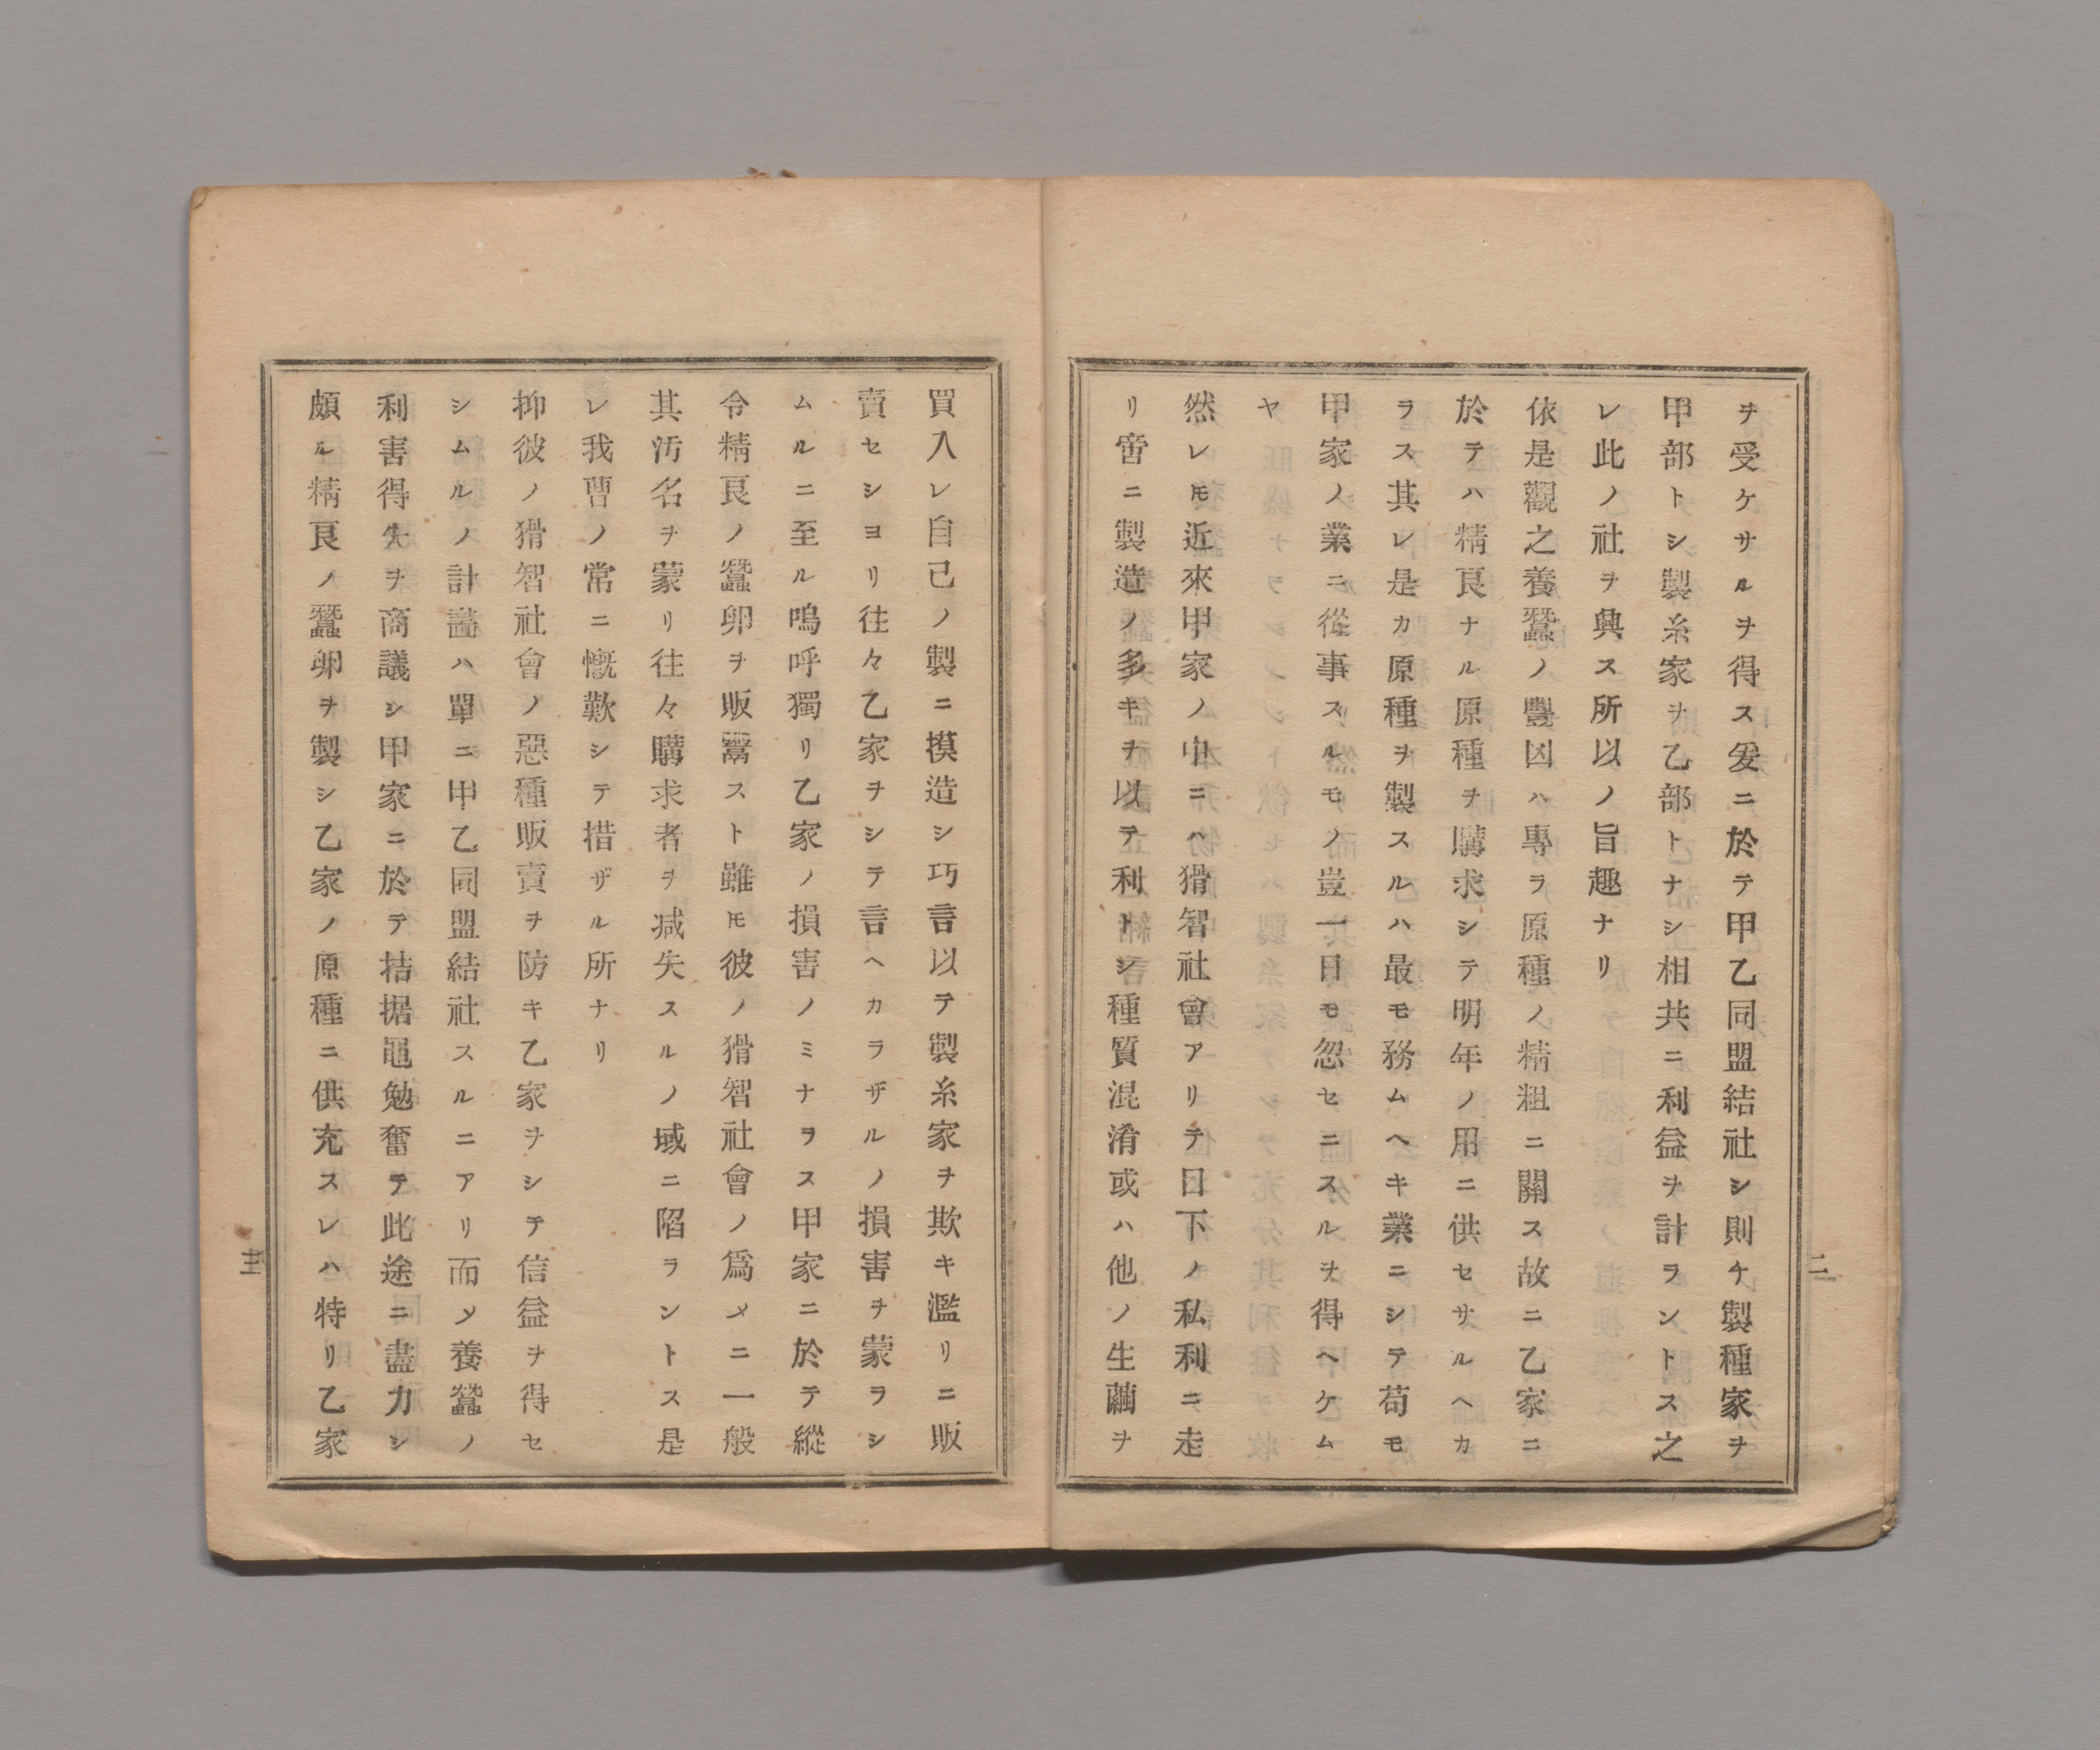 ヲ受ケサルヲ得ス爰ニ於テ甲乙同盟結社シ則ケ製種家ヲ
甲部トシ製糸家ヲ乙部トナシ相共ニ利益ヲ計ラントス之
レ此ノ社ヲ興ス所以ノ旨趣ナリ
依是觀之養蠶ノ豐凶ハ專ラ原種ノ精粗ニ關ス故ニ乙家ニ
於テハ精良ナル原種ヲ購求シテ明年ノ用ニ供セサルヘカ
ラス其レ是カ原種ヲ製スルハ最モ務ムヘキ業ニシテ苟モ
甲家ノ業ニ從事スルモノ豈一日モ忽セニスルヲ得ヘケム
ヤ
然レ𪜈近來甲家ノ中ニハ猾智社會アリテ目下ノ私利ニ走
リ啻ニ製造ノ多キヲ以テ利トシ種質混淆或ハ他ノ生繭ヲ
二
買入レ自己ノ製ニ摸造シ巧言以テ製糸家ヲ欺キ濫リニ販
賣セシヨリ往々乙家ヲシテ言ヘカラザルノ損害ヲ蒙ラシ
ムルニ至ル嗚呼獨リ乙家ノ損害ノミナラス甲家ニ於テ縱
令精良ノ蠶卵ヲ販鬻スト雖𪜈彼ノ猾智社會ノ爲メニ一般
其汚名ヲ蒙リ往々購求者ヲ减失スルノ域ニ陷ラントス是
レ我曹ノ常ニ慨歎シテ措ザル所ナリ
抑彼ノ猾智社會ノ惡種販賣ヲ防キ乙家ヲシテ信益ヲ得セ
シムルノ計畵ハ單ニ甲乙同盟結社スルニアリ而メ養蠶ノ
利害得失ヲ商議シ甲家ニ於テ拮据黽勉奮テ此途ニ盡力シ
頗ル精良ノ蠶卵ヲ製シ乙家ノ原種ニ供充スレハ特リ乙家
三